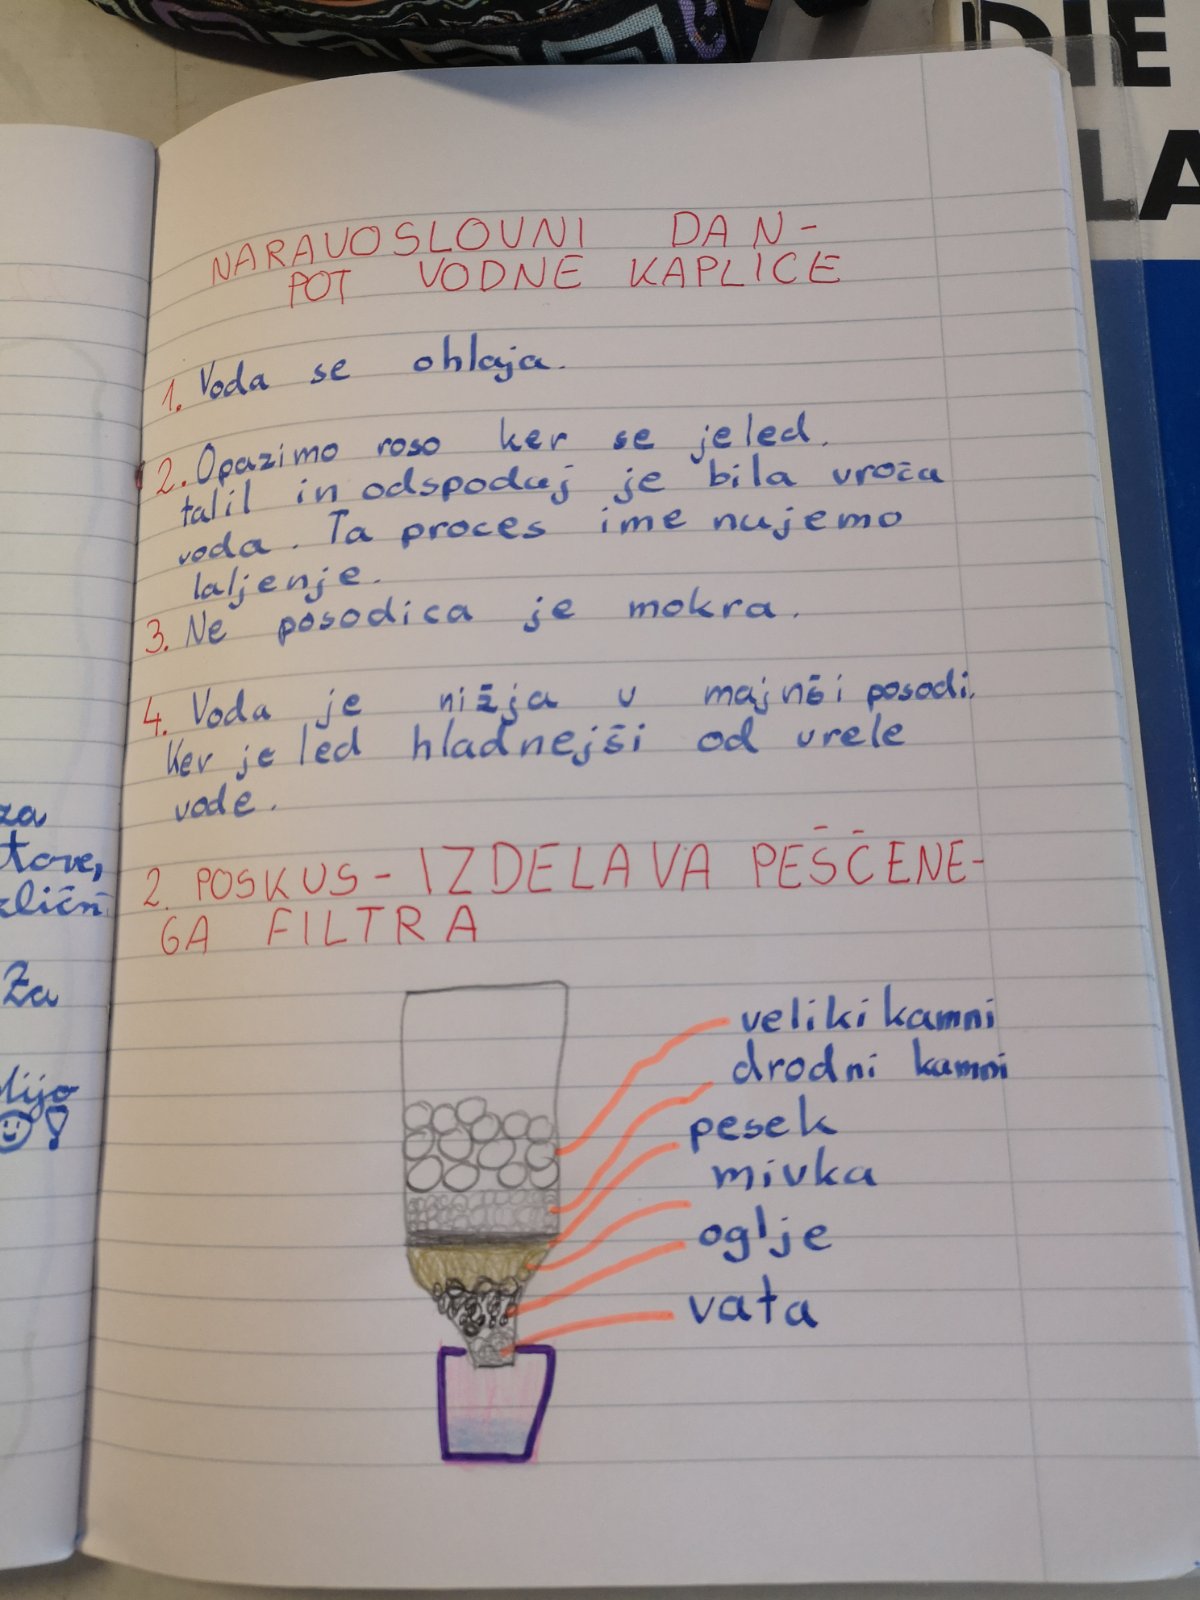 DIE
LA
NARAVOSLOVNI DAN-
POT VODNE KAPLICE
1. Voda se ohlaja.
2. Opazimo roso ker se je led.
talil in odspoduj je bila vroča
voda. Ta proces imenujemo
laljenje.
3. Ne posodica je mokra.
4. Voda je nižja v majnši posodi.
Ker je led hladnejši od vrele
vode.
2. POSKUS - IZDELAVA PEŠČENE-
GA FILTRA
veliki kamni
drodni kamni
pesek
mivka
oglje
vata
za
Za